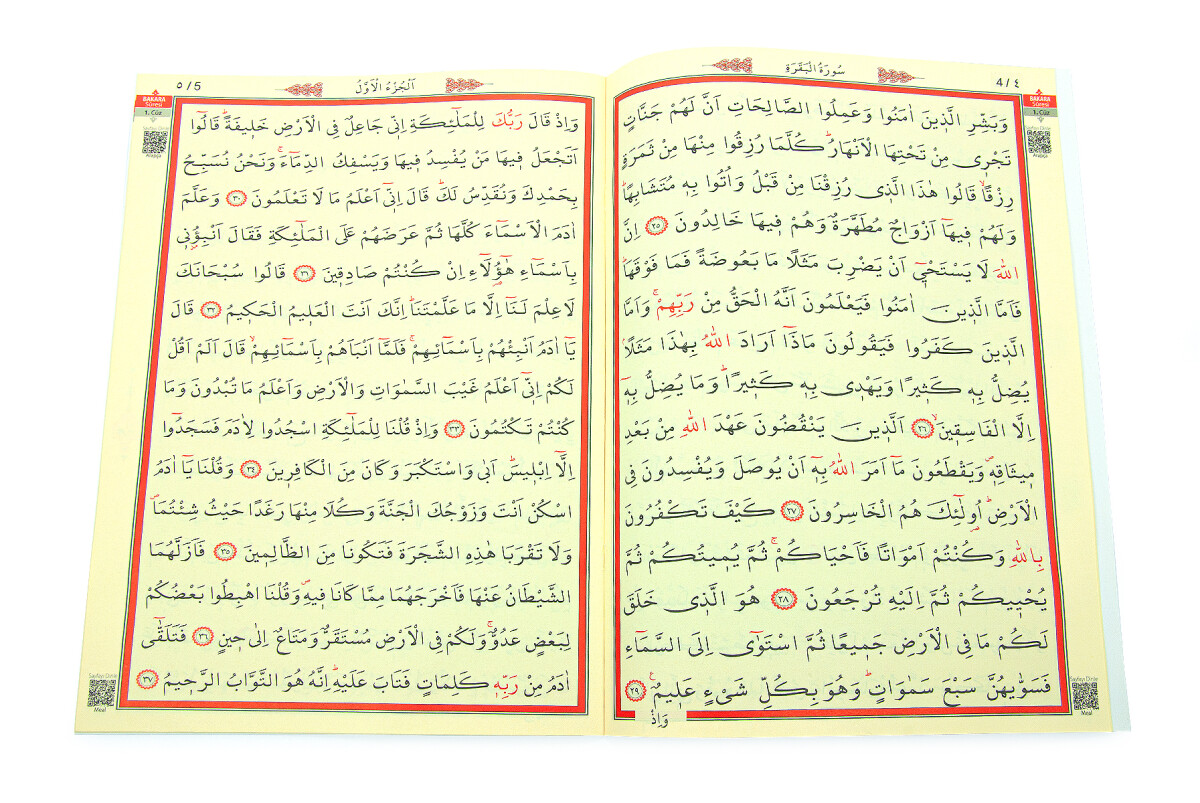 سُورَةُ الْبَقَرَةِ
4/٤
BAKARA
Sûresi
1. Cüz
Arapça
وَبَشِّرِ الَّذٖينَ اٰمَنُوا وَعَمِلُوا الصَّالِحَاتِ اَنَّ لَهُمْ جَنَّاتٍ
تَجْرٖى مِنْ تَحْتِهَا الْاَنْهَارُۜ كُلَّمَا رُزِقُوا مِنْهَا مِنْ ثَمَرَةٍ
رِزْقًاۙ قَالُوا هٰذَا الَّذٖى رُزِقْنَا مِنْ قَبْلُ وَاُتُوا بِهٖ مُتَشَابِهًاۜ
وَلَهُمْ فٖيهَٓا اَزْوَاجٌ مُطَهَّرَةٌ وَهُمْ فٖيهَا خَالِدُونَ ﴿٢٥﴾ اِنَّ
اللّٰهَ لَا يَسْتَحْيٖٓ اَنْ يَضْرِبَ مَثَلًا مَا بَعُوضَةً فَمَا فَوْقَهَاۜ
فَاَمَّا الَّذٖينَ اٰمَنُوا فَيَعْلَمُونَ اَنَّهُ الْحَقُّ مِنْ رَبِّهِمْۚ وَاَمَّا
الَّذٖينَ كَفَرُوا فَيَقُولُونَ مَاذَٓا اَرَادَ اللّٰهُ بِهٰذَا مَثَلًاۢ
يُضِلُّ بِهٖ كَثٖيرًا وَيَهْدٖى بِهٖ كَثٖيرًاۜ وَمَا يُضِلُّ بِهٖٓ
اِلَّا الْفَاسِقٖينَۙ ﴿٢٦﴾ اَلَّذٖينَ يَنْقُضُونَ عَهْدَ اللّٰهِ مِنْ بَعْدِ
مٖيثَاقِهٖ وَيَقْطَعُونَ مَٓا اَمَرَ اللّٰهُ بِهٖٓ اَنْ يُوصَلَ وَيُفْسِدُونَ فِى
الْاَرْضِۜ اُو۬لٰٓئِكَ هُمُ الْخَاسِرُونَ ﴿٢٧﴾ كَيْفَ تَكْفُرُونَ
بِاللّٰهِ وَكُنْتُمْ اَمْوَاتًا فَاَحْيَاكُمْۚ ثُمَّ يُمٖيتُكُمْ ثُمَّ
يُحْيٖيكُمْ ثُمَّ اِلَيْهِ تُرْجَعُونَ ﴿٢٨﴾ هُوَ الَّذٖى خَلَقَ
لَكُمْ مَا فِى الْاَرْضِ جَمٖيعًا ثُمَّ اسْتَوٰٓى اِلَى السَّمَٓاءِ
فَسَوّٰيهُنَّ سَبْعَ سَمٰوَاتٍۜ وَهُوَ بِكُلِّ شَىْءٍ عَلٖيمٌ۟ ﴿٢٩﴾
وَاِذْ
Sayfayı Dinle
Meal
٥/5
اَلْجُزْءُ الْاَوَّلُ
BAKARA
Sûresi
1. Cüz
Arapça
وَاِذْ قَالَ رَبُّكَ لِلْمَلٰٓئِكَةِ اِنّٖى جَاعِلٌ فِى الْاَرْضِ خَلٖيفَةًۜ قَالُٓوا
اَتَجْعَلُ فٖيهَا مَنْ يُفْسِدُ فٖيهَا وَيَسْفِكُ الدِّمَٓاءَۚ وَنَحْنُ نُسَبِّحُ
بِحَمْدِكَ وَنُقَدِّسُ لَكَۜ قَالَ اِنّٖٓى اَعْلَمُ مَا لَا تَعْلَمُونَ ﴿٣٠﴾ وَعَلَّمَ
اٰدَمَ الْاَسْمَٓاءَ كُلَّهَا ثُمَّ عَرَضَهُمْ عَلَى الْمَلٰٓئِكَةِ فَقَالَ اَنْبِؤُ۫نٖى
بِاَسْمَٓاءِ هٰٓؤُ۬لَٓاءِ اِنْ كُنْتُمْ صَادِقٖينَ ﴿٣١﴾ قَالُوا سُبْحَانَكَ
لَا عِلْمَ لَنَٓا اِلَّا مَا عَلَّمْتَنَاۜ اِنَّكَ اَنْتَ الْعَلٖيمُ الْحَكٖيمُ ﴿٣٢﴾ قَالَ
يَٓا اٰدَمُ اَنْبِئْهُمْ بِاَسْمَٓائِهِمْۚ فَلَمَّٓا اَنْبَاَهُمْ بِاَسْمَٓائِهِمْۙ قَالَ اَلَمْ اَقُلْ
لَكُمْ اِنّٖٓى اَعْلَمُ غَيْبَ السَّمٰوَاتِ وَالْاَرْضِ وَاَعْلَمُ مَا تُبْدُونَ وَمَا
كُنْتُمْ تَكْتُمُونَ ﴿٣٣﴾ وَاِذْ قُلْنَا لِلْمَلٰٓئِكَةِ اسْجُدُوا لِاٰدَمَ فَسَجَدُٓوا
اِلَّٓا اِبْلٖيسَۜ اَبٰى وَاسْتَكْبَرَ وَكَانَ مِنَ الْكَافِرٖينَ ﴿٣٤﴾ وَقُلْنَا يَٓا اٰدَمُ
اسْكُنْ اَنْتَ وَزَوْجُكَ الْجَنَّةَ وَكُلَا مِنْهَا رَغَدًا حَيْثُ شِئْتُمَاۖ
وَلَا تَقْرَبَا هٰذِهِ الشَّجَرَةَ فَتَكُونَا مِنَ الظَّالِمٖينَ ﴿٣٥﴾ فَاَزَلَّهُمَا
الشَّيْطَانُ عَنْهَا فَاَخْرَجَهُمَا مِمَّا كَانَا فٖيهِۖ وَقُلْنَا اهْبِطُوا بَعْضُكُمْ
لِبَعْضٍ عَدُوٌّۚ وَلَكُمْ فِى الْاَرْضِ مُسْتَقَرٌّ وَمَتَاعٌ اِلٰى حٖينٍ ﴿٣٦﴾ فَتَلَقّٰٓى
اٰدَمُ مِنْ رَبِّهٖ كَلِمَاتٍ فَتَابَ عَلَيْهِۜ اِنَّهُ هُوَ التَّوَّابُ الرَّحٖيمُ ﴿٣٧﴾
Sayfayı Dinle
Meal